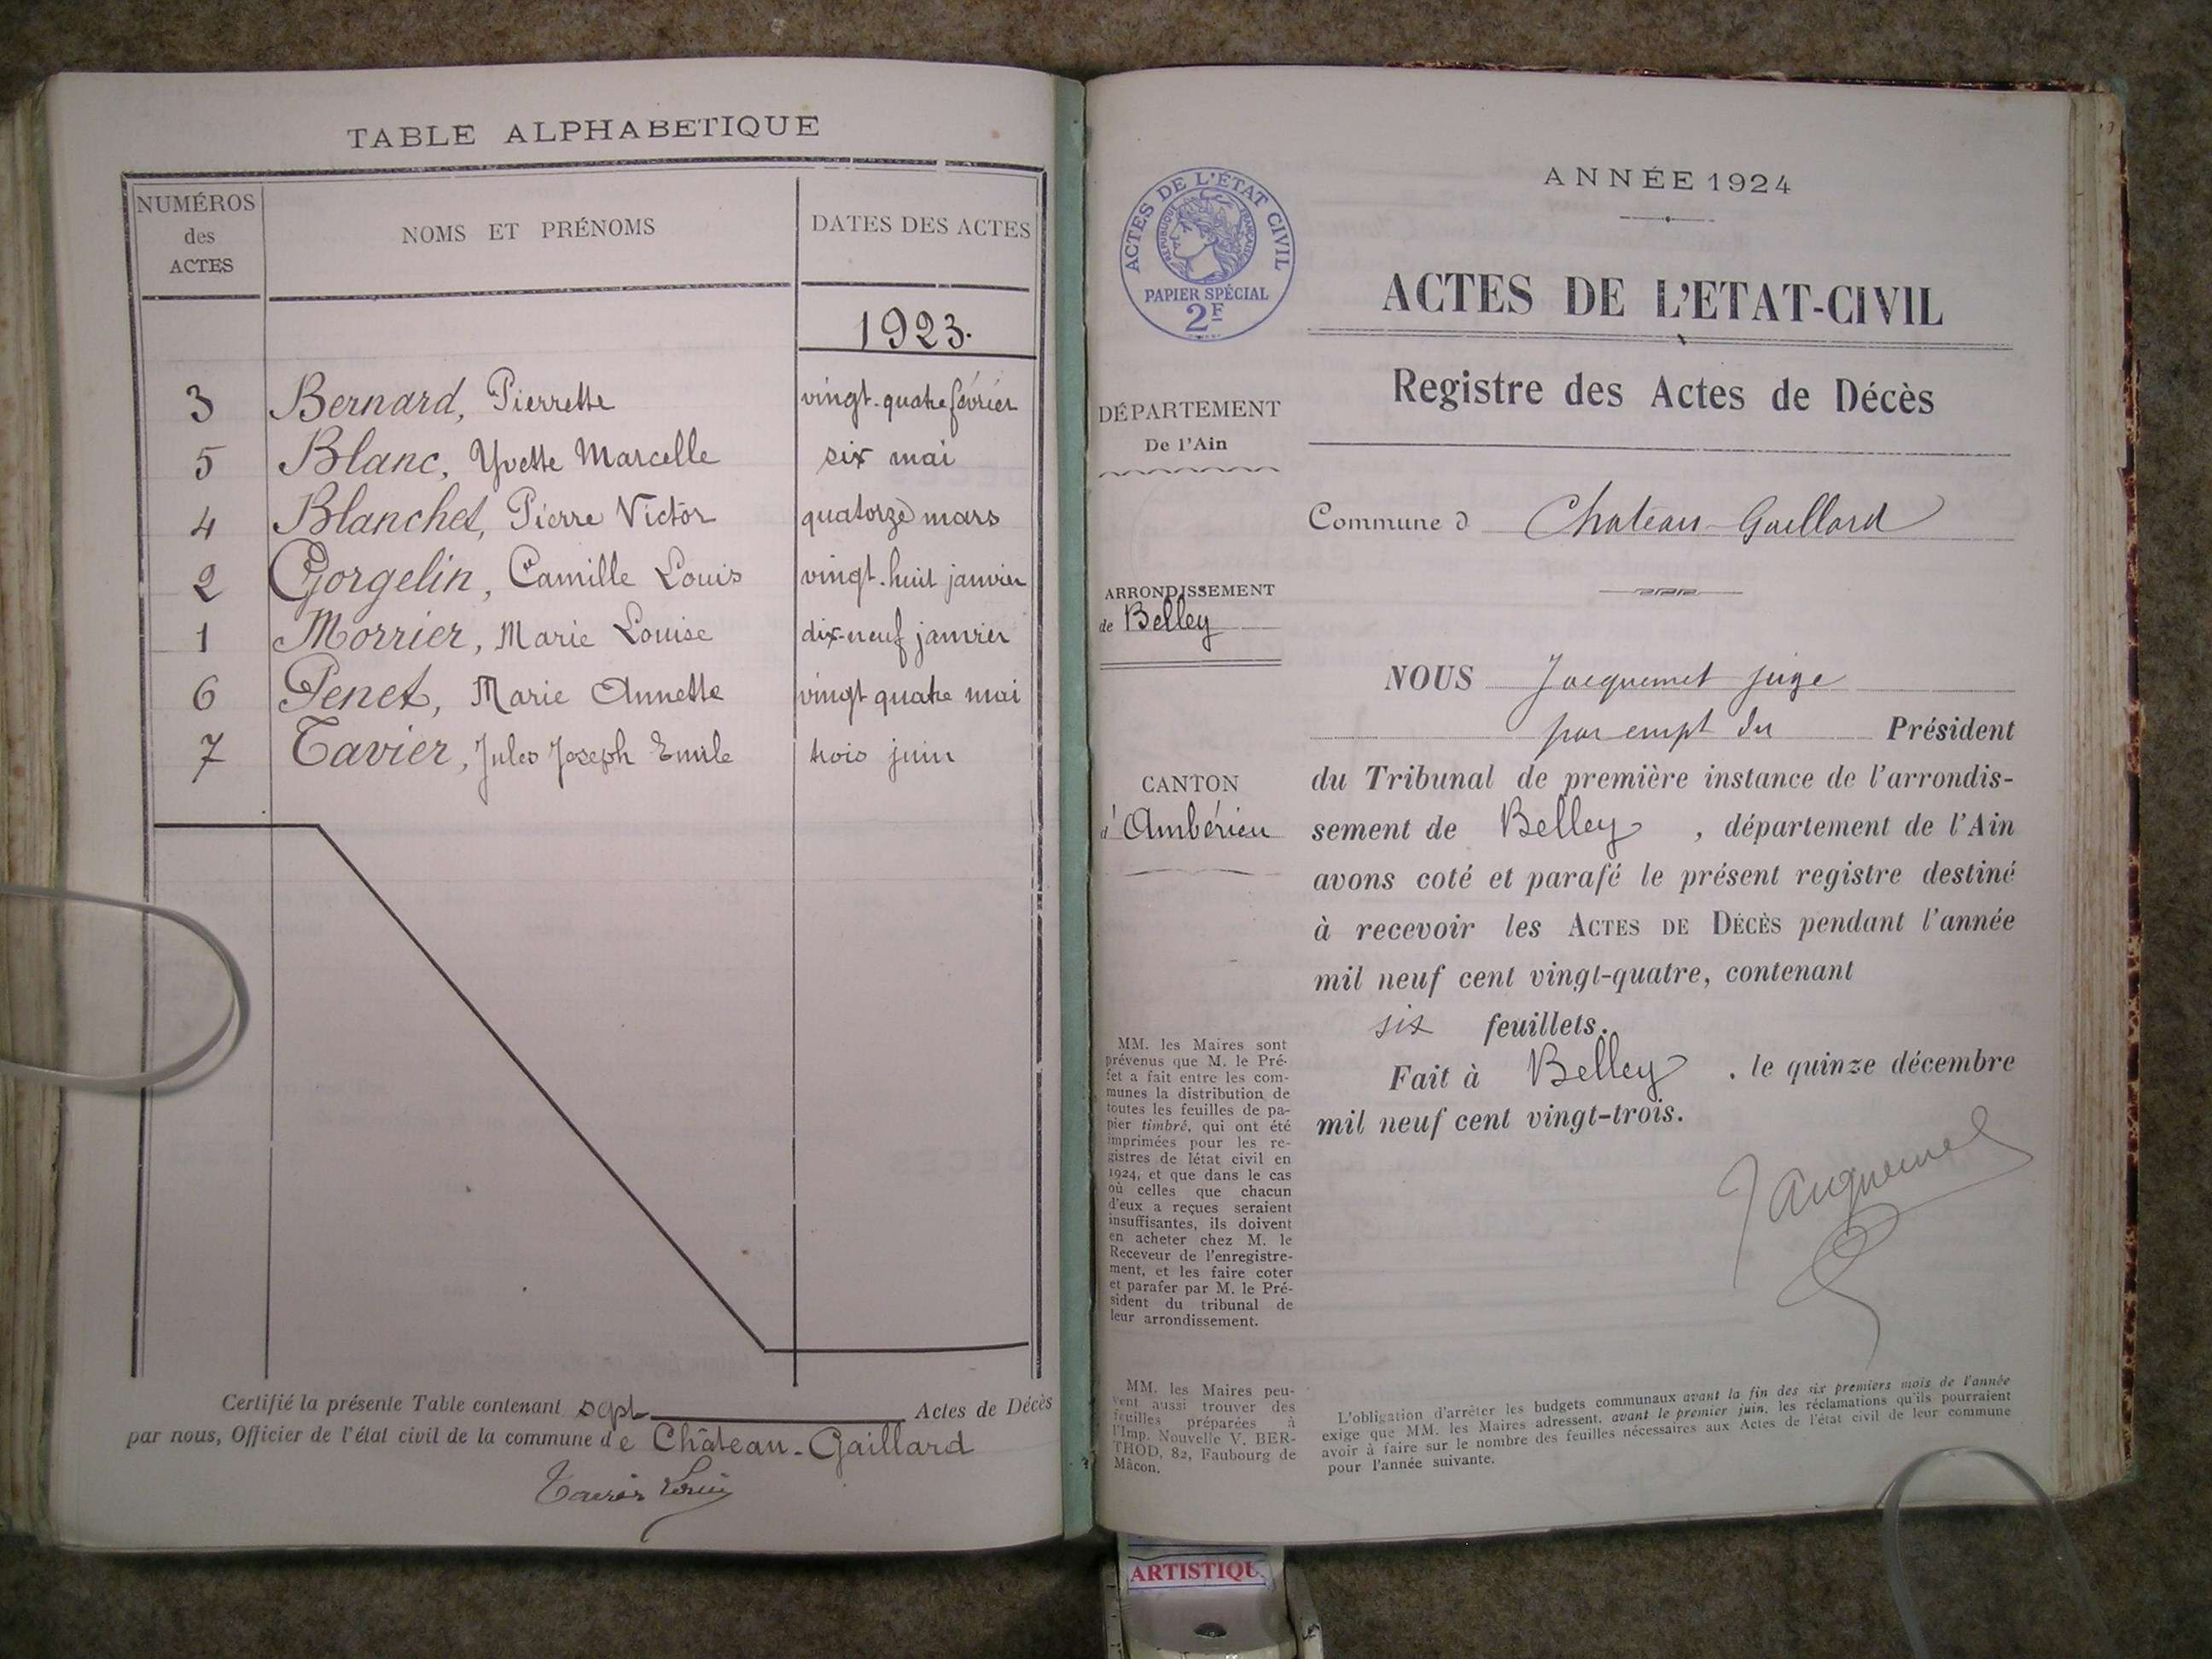 TABLE ALPHABETIQUE
NUMÉROS
des
ACTES
NOMS ET PRÉNOMS
DATES DES ACTES
1923.
3 Bernard, Pierrette vingt-quatre février
5 Blanc, Yvette Marcelle six mai
4 Blanchet, Pierre Victor quatorze mars
2 Gorgelin, Camille Louis vingt-huit janvier
1 Morrier, Marie Louise dix-neuf janvier
6 Penet, Marie Annette vingt quatre mai
7 Tavier, Jules Joseph Emile trois juin
Certifié la présente Table contenant sept Actes de Décès
par nous, Officier de l'état civil de la commune de Château-Gaillard
Tavier
ACTES DE L'ÉTAT CIVIL
RÉPUBLIQUE FRANÇAISE
PAPIER SPÉCIAL
2F
DÉPARTEMENT
De l'Ain
ARRONDISSEMENT
de Belley
CANTON
d'Ambérieu
MM. les Maires sont
prévenus que M. le Pré-
fet a fait entre les com-
munes la distribution de
toutes les feuilles de pa-
pier timbré, qui ont été
imprimées pour les re-
gistres de létat civil en
1924, et que dans le cas
où celles que chacun
d'eux a reçues seraient
insuffisantes, ils doivent
en acheter chez M. le
Receveur de l'enregistre-
ment, et les faire coter
et parafer par M. le Pré-
sident du tribunal de
leur arrondissement.
MM. les Maires peu-
vent aussi trouver des
feuilles préparées à
l'Imp. Nouvelle V. BER-
THOD, 82, Faubourg de
Mâcon.
ANNÉE 1924
ACTES DE L'ETAT-CIVIL
Registre des Actes de Décès
Commune d Chateau-Gaillard
NOUS Jacquemet juge
par empt du Président
du Tribunal de première instance de l'arrondis-
sement de Belley, département de l'Ain
avons coté et parafé le présent registre destiné
à recevoir les ACTES DE DÉCÈS pendant l'année
mil neuf cent vingt-quatre, contenant
six feuillets.
Fait à Belley, le quinze décembre
mil neuf cent vingt-trois.
Jacquemet
L'obligation d'arrêter les budgets communaux avant la fin des six premiers mois de l'année
exige que MM. les Maires adressent, avant le premier juin, les réclamations qu'ils pourraient
avoir à faire sur le nombre des feuilles nécessaires aux Actes de l'état civil de leur commune
pour l'année suivante.
ARTISTIQU